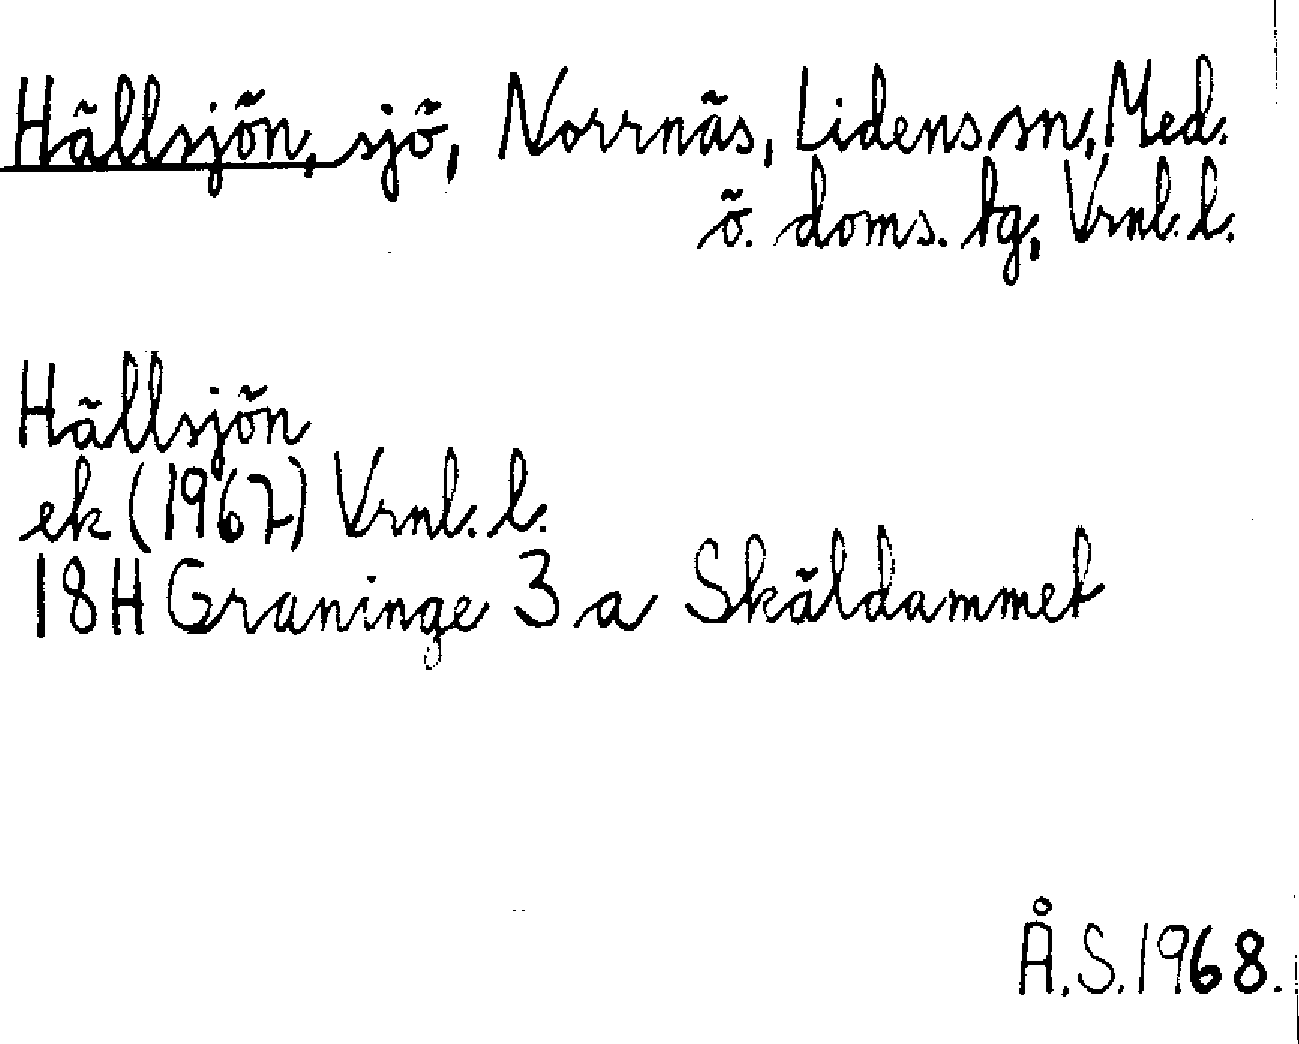 Hällsjön, sjö, Norrnäs, Lidens sn, Med.
ö. doms. tg, Vrnl. l.
Hällsjön
ek (1967) Vrnl. l.
18H Graninge 3 a Skäldammet
Å.S. 1968.